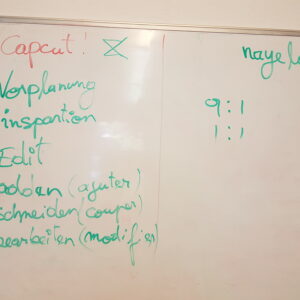 Capcut!
Vorplanung
inspartion
Edit
adden (ajuter)
schneiden (couper)
bearbeiten (modifier)
9:1
1:1